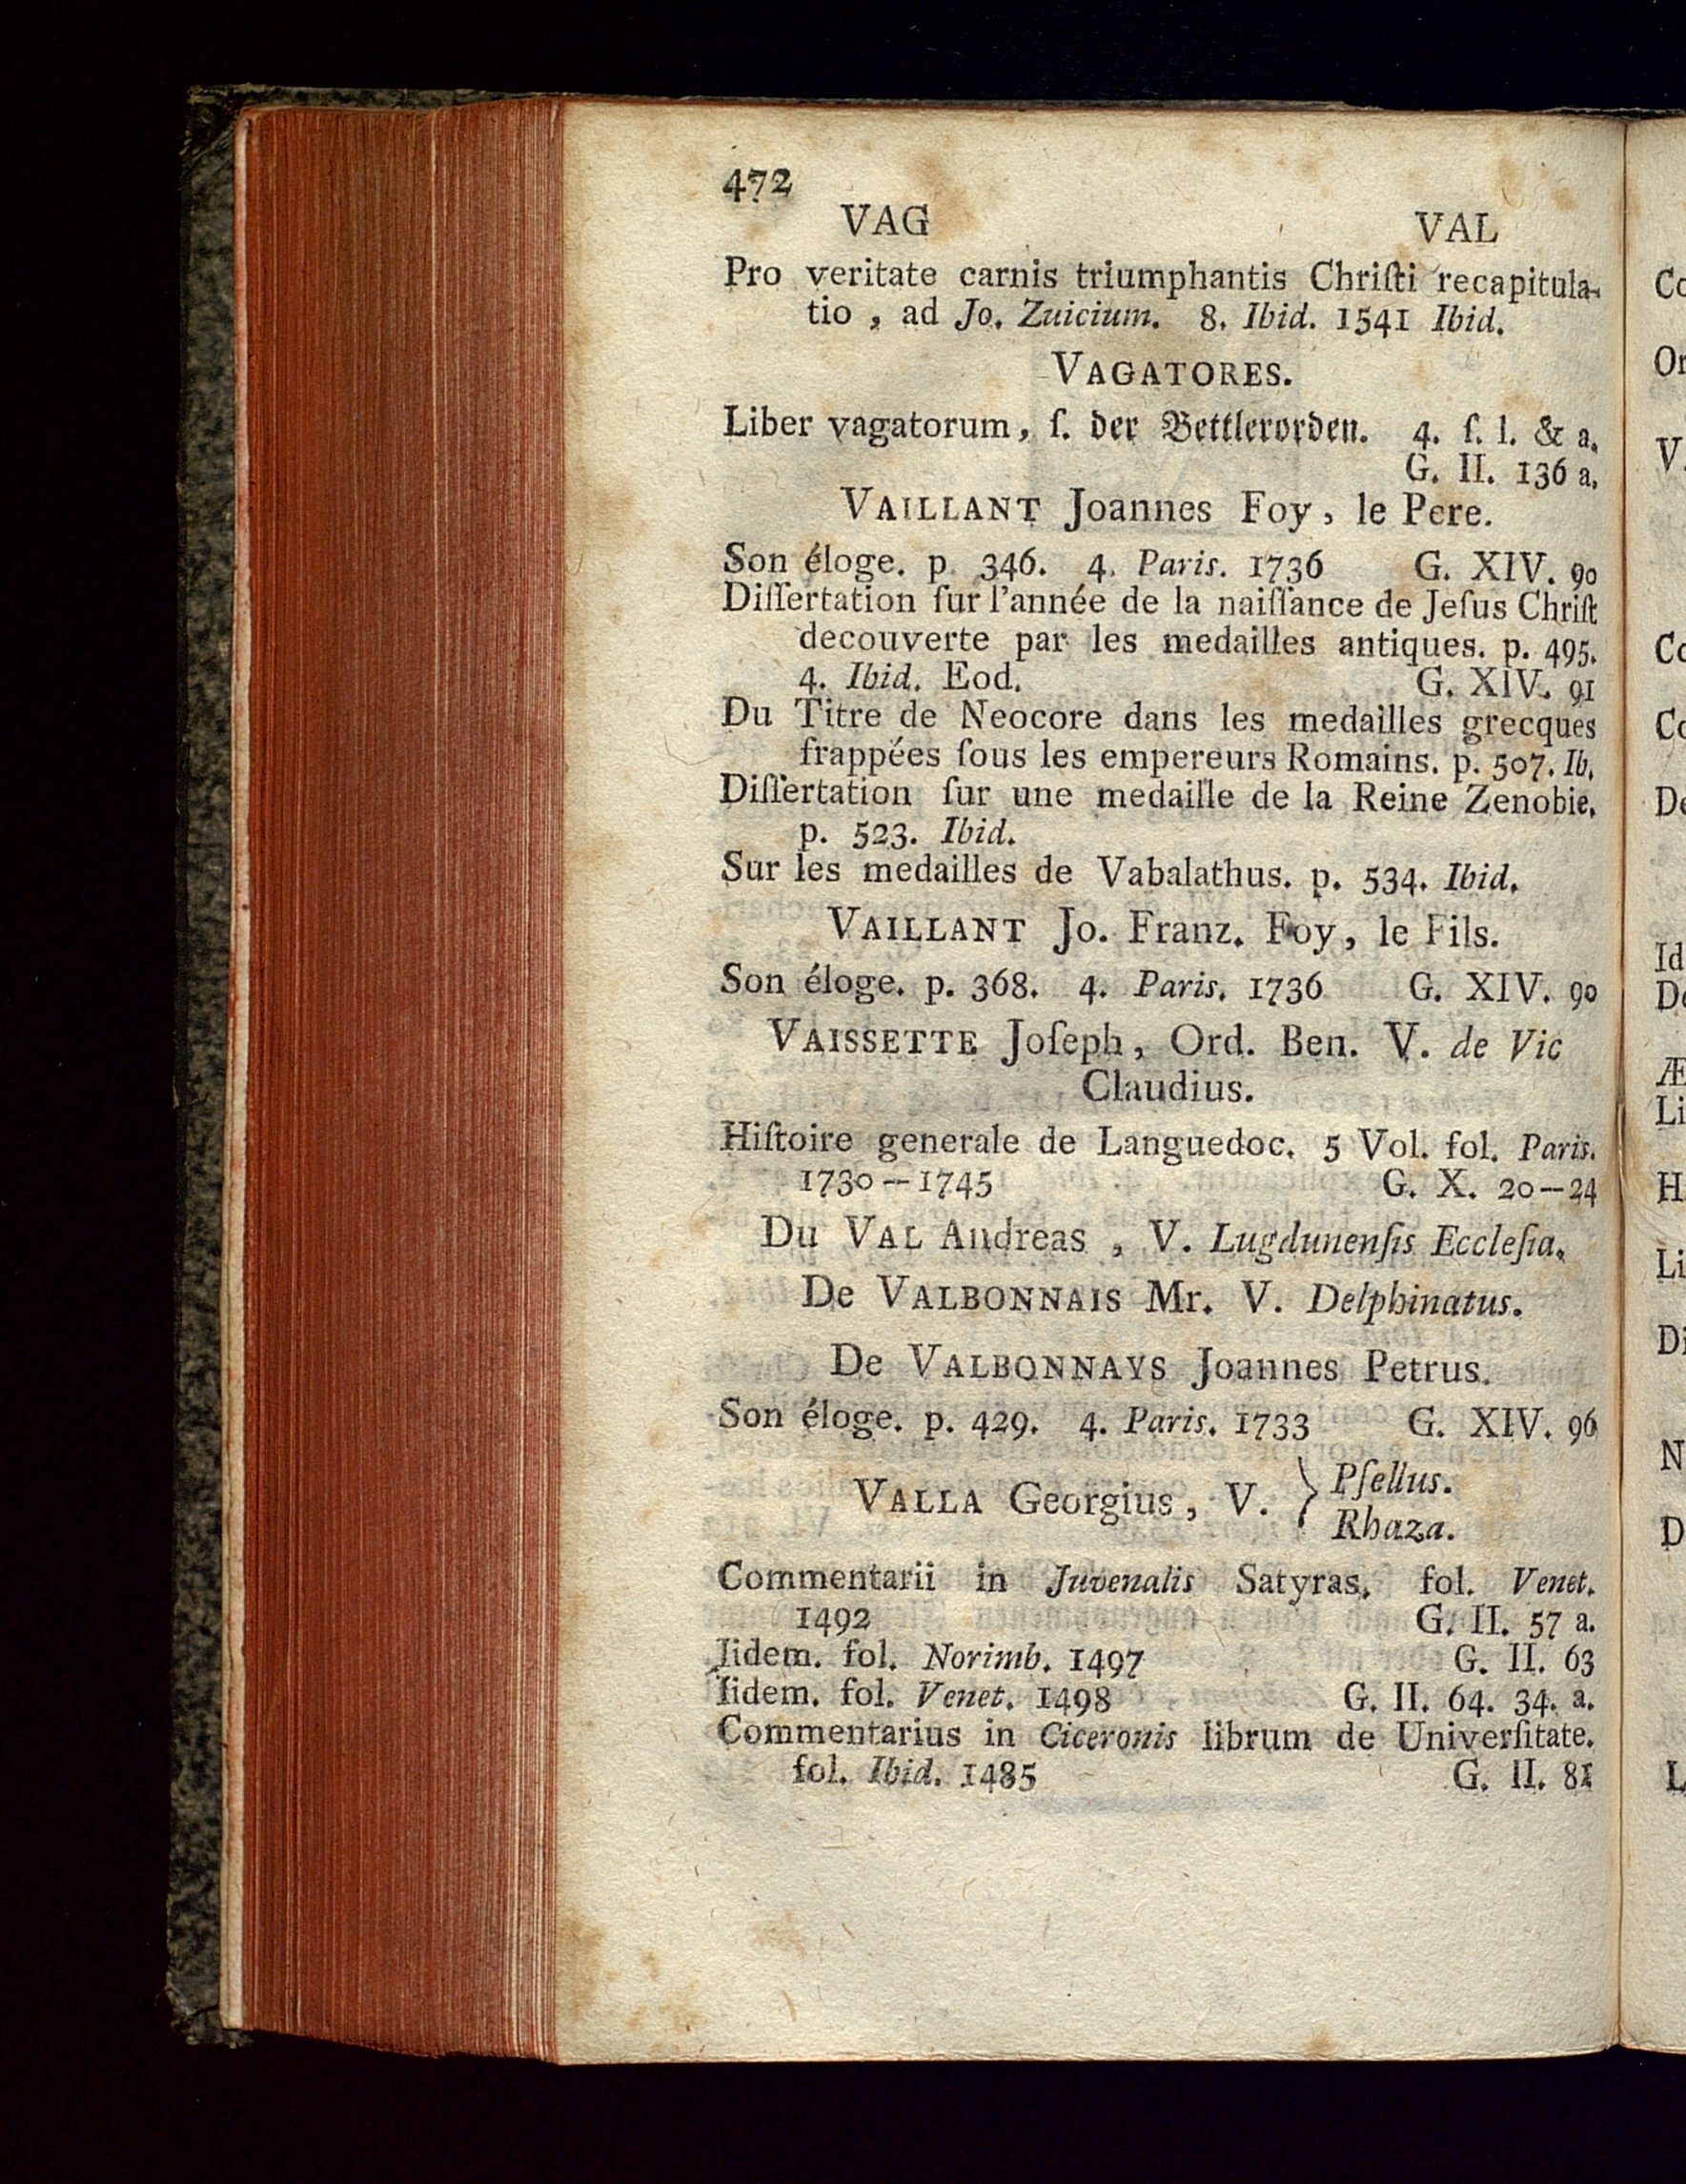 472
VAG VAL
Pro veritate carnis triumphantis Chriſti recapitula-
tio, ad Jo. Zuicium. 8. Ibid. 1541 Ibid.
VAGATORES.
Liber vagatorum, ſ. der Bettlerorden. 4. ſ. l. & a.
G. II. 136 a.
VAILLANT Joannes Foy, le Pere.
Son éloge. p. 346. 4. Paris. 1736 G. XIV. 90
Diſſertation ſur l'année de la naiſſance de Jeſus Chriſt
decouverte par les medailles antiques. p. 495.
4. Ibid. Eod. G. XIV. 91
Du Titre de Neocore dans les medailles grecques
frappées ſous les empereurs Romains. p. 507. Ib.
Diſſertation ſur une medaille de la Reine Zenobie.
p. 523. Ibid.
Sur les medailles de Vabalathus. p. 534. Ibid.
VAILLANT Jo. Franz. Foy, le Fils.
Son éloge. p. 368. 4. Paris. 1736 G. XIV. 90
VAISSETTE Joſeph, Ord. Ben. V. de Vic
Claudius.
Hiſtoire generale de Languedoc. 5 Vol. fol. Paris.
1730—1745 G. X. 20—24
Du VAL Andreas, V. Lugdunenſis Eccleſia.
De VALBONNAIS Mr. V. Delphinatus.
De VALBONNAYS Joannes Petrus.
Son éloge. p. 429. 4. Paris. 1733 G. XIV. 96
VALLA Georgius, V. } Pſellus.
Rhaza.
Commentarii in Juvenalis Satyras. fol. Venet.
1492 G. II. 57 a.
Iidem. fol. Norimb. 1497 G. II. 63
Iidem. fol. Venet. 1498 G. II. 64. 34. a.
Commentarius in Ciceronis librum de Univerſitate.
fol. Ibid. 1485 G. II. 81